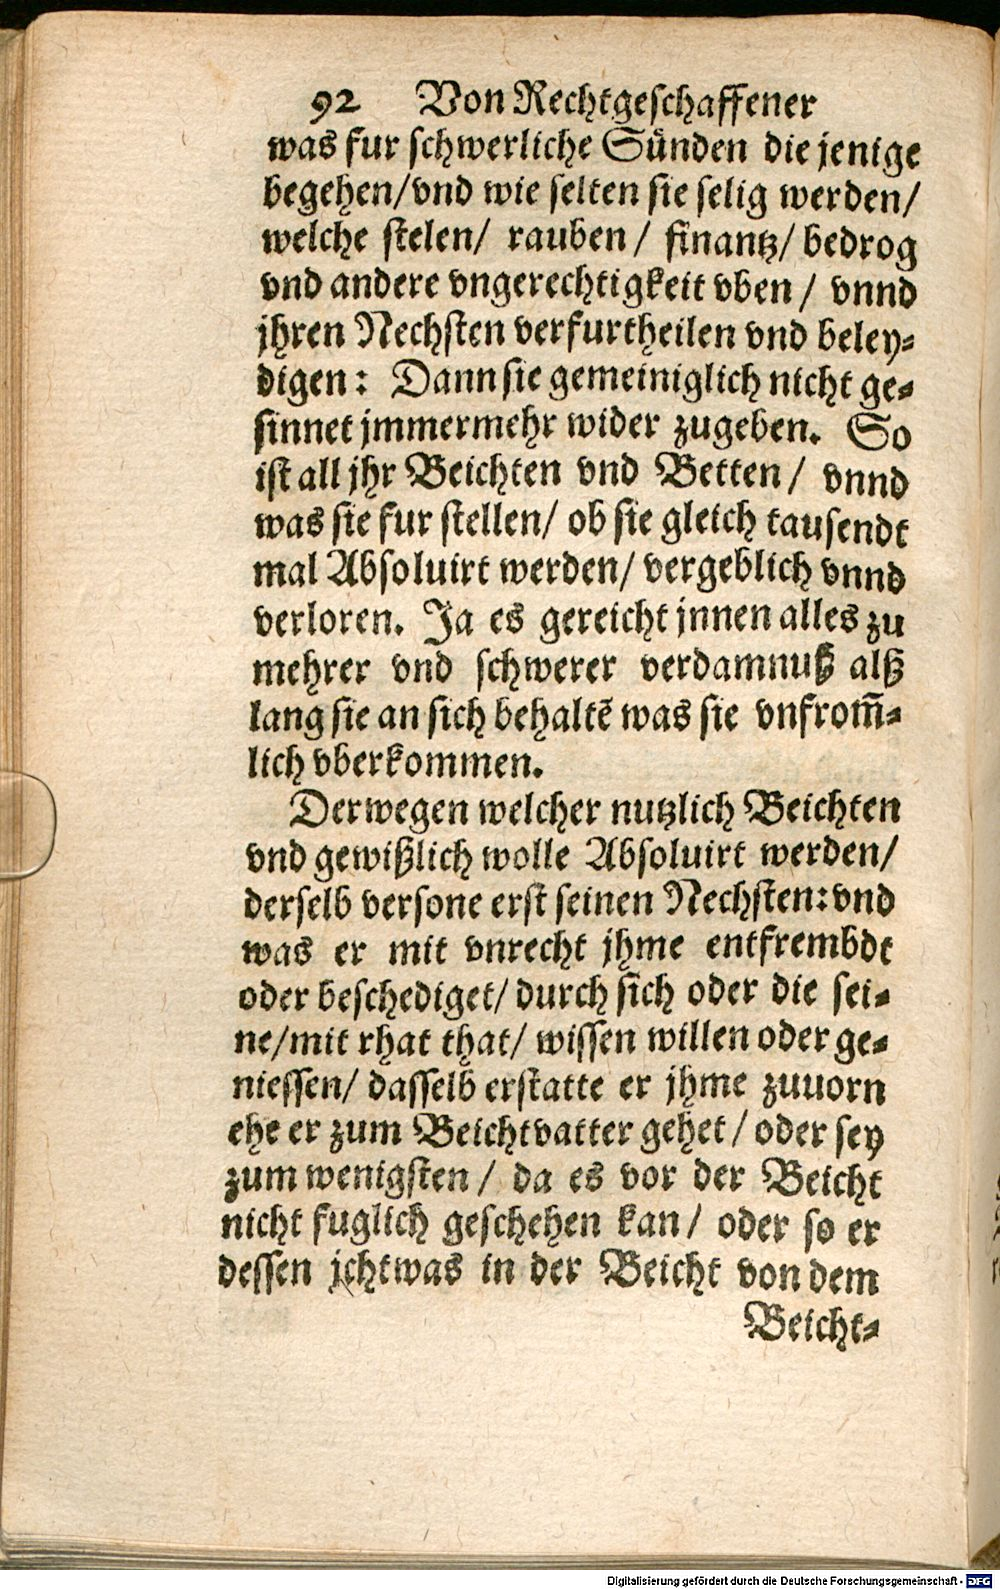 92 Von Rechtgeschaffener
was fur schwerliche Sünden die jenige
begehen/vnd wie selten sie selig werden/
welche stelen/ rauben/ finantz/ bedrog
vnd andere vngerechtigkeit vben/ vnnd
jhren Nechsten verfurtheilen vnd beley-
digen: Dann sie gemeiniglich nicht ge-
sinnet jmmermehr wider zugeben. So
ist all jhr Beichten vnd Betten/ vnnd
was sie fur stellen/ ob sie gleich tausendt
mal Absoluirt werden/ vergeblich vnnd
verloren. Ja es gereicht jnnen alles zu
mehrer vnd schwerer verdamnuß alß
lang sie an sich behaltē was sie vnfrom̃-
lich vberkommen.
Derwegen welcher nutzlich Beichten
vnd gewißlich wolle Absoluirt werden/
derselb versone erst seinen Nechsten: vnd
was er mit vnrecht jhme entfrembdt
oder beschediget/ durch sich oder die sei-
ne/mit rhat that/ wissen willen oder ge-
niessen/ dasselb erstatte er jhme zuuorn
ehe er zum Beichtvatter gehet/ oder sey
zum wenigsten/ da es vor der Beicht
nicht fuglich geschehen kan/ oder so er
dessen jchtwas in der Beicht von dem
Beicht-
Digitalisierung gefördert durch die Deutsche Forschungsgemeinschaft - DFG